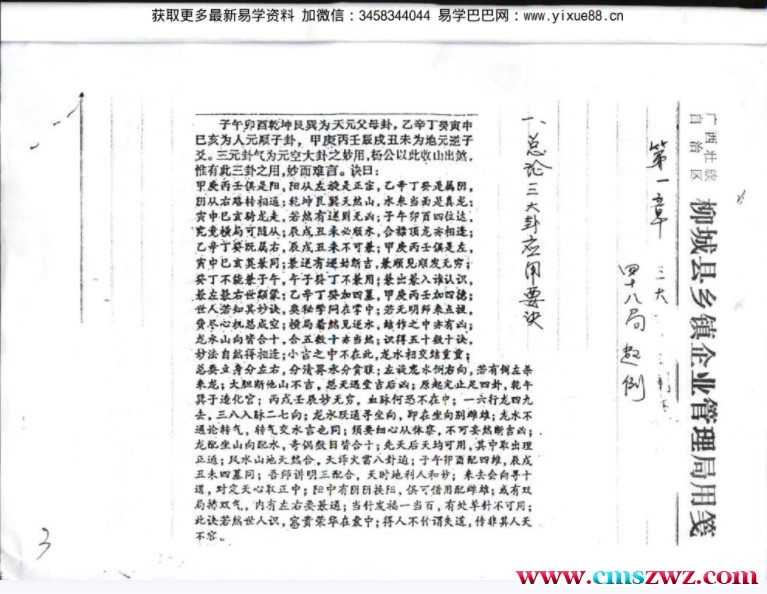 获取更多最新易学资料 加微信：3458344044 易学巴巴网：www.yixue88.cn
广西壮族
自治区
柳城县乡镇企业管理局用笺
第一章 三大
四十八局起例
一、总论三大卦应用要诀
子午卯酉乾坤艮巽为天元父母卦，乙辛丁癸寅申
巳亥为人元顺子卦，甲庚丙壬辰戌丑未为地元逆子
爻。三元卦气为元空大卦之妙用，杨公以此收山出煞，
惟有此三卦之用，妙而难言。诀曰：
甲庚丙壬俱是阳，阳从左旋是正宗，乙辛丁癸是属阴，
阴从右路转相通；乾坤艮巽天然山，水来当面是真龙；
寅申巳亥骑龙走，若然有逆则无凶；子午卯酉四位达，
究竟横局可随从；辰戌丑未必顺水，合襟顶龙亦相连；
乙辛丁癸既属右，辰戌丑未不可兼；甲庚丙壬俱是左，
寅申巳亥莫兼同；兼逆有逆始断吉，兼顺见顺发无穷；
癸丁不能兼子午，午子癸丁不兼用；兼出兼入谁认识，
兼左兼右世颓蒙；乙辛丁癸加四墓，甲庚丙壬加四德；
世人若知其妙诀，奥秘学问在掌中；若无明师来点拨，
费尽心机总成空；横局看然见逆水，结作之中亦有凶；
龙水山向皆合十，合五数十亦当然；识得五十数十诀，
妙法自然得相连；小吉之中不在此，龙水相交结重重；
总要立身分左右，分清算水分贪狼；左旋忌水倒右向，若有倒左杀
来龙；大胆断他山不吉，总天遇堂吉后凶；原起定止足四卦，乾午
巽子连化宫；丙戌壬辰妙无穷，血脉何恐不在中；一六行龙四九
去，三八入脉二七向；龙水跃通寻坐向，即在坐向别雌雄；龙水不
通论转气，转气交水吉也同；须要细心从体察，不可妄然断吉凶；
龙配坐山向配水，奇偶数目皆合十；先天后天均可用，其中取出理
正通；艮水山地天然合，天泽火雷八卦通；子午卯酉配四维，辰戌
丑未四墓同；吾师讲明三配合，天时地利人和妙；来去会向寻十
道，对定天心取正中；阳中有阴阴换阳，俱可借用配雌雄；或有双
局持双气，内有左右要兼通；当针发福一当百，有处草针不可用；
此诀若然世人识，富贵荣华在囊中；得人不传谓失道，传非其人天
不容。
3
www.cmszwz.com